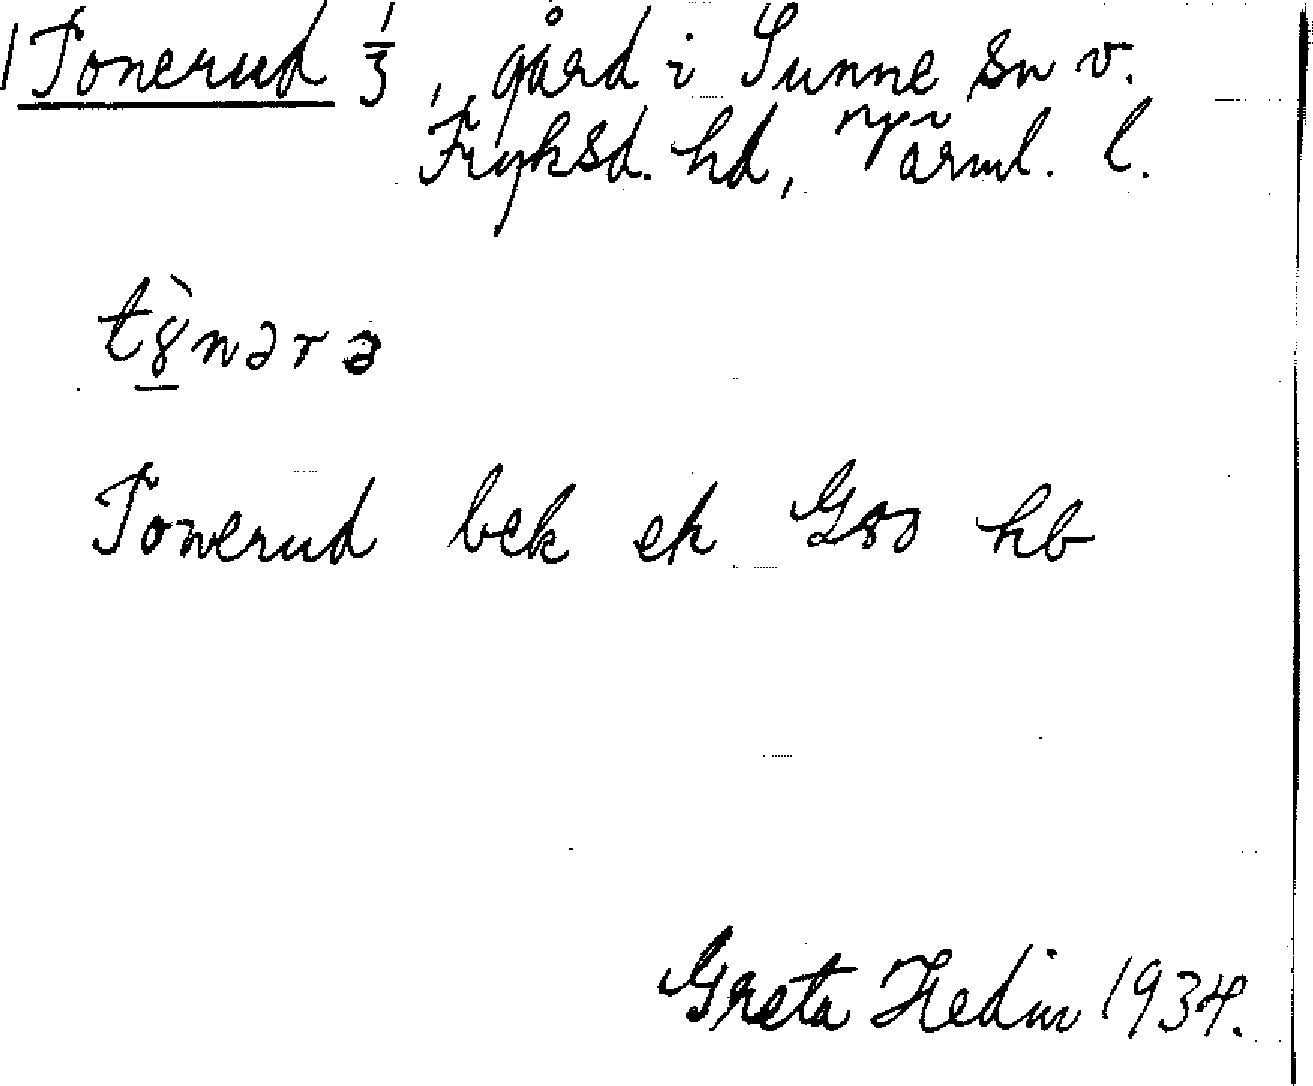 1 Tonerud 1/3, gård i Sunne sn v.
Fryksd. hd, Värml. l.
t8̠̀nərə
Tonerud bek ek Gso hb
Greta Hedin 1934.